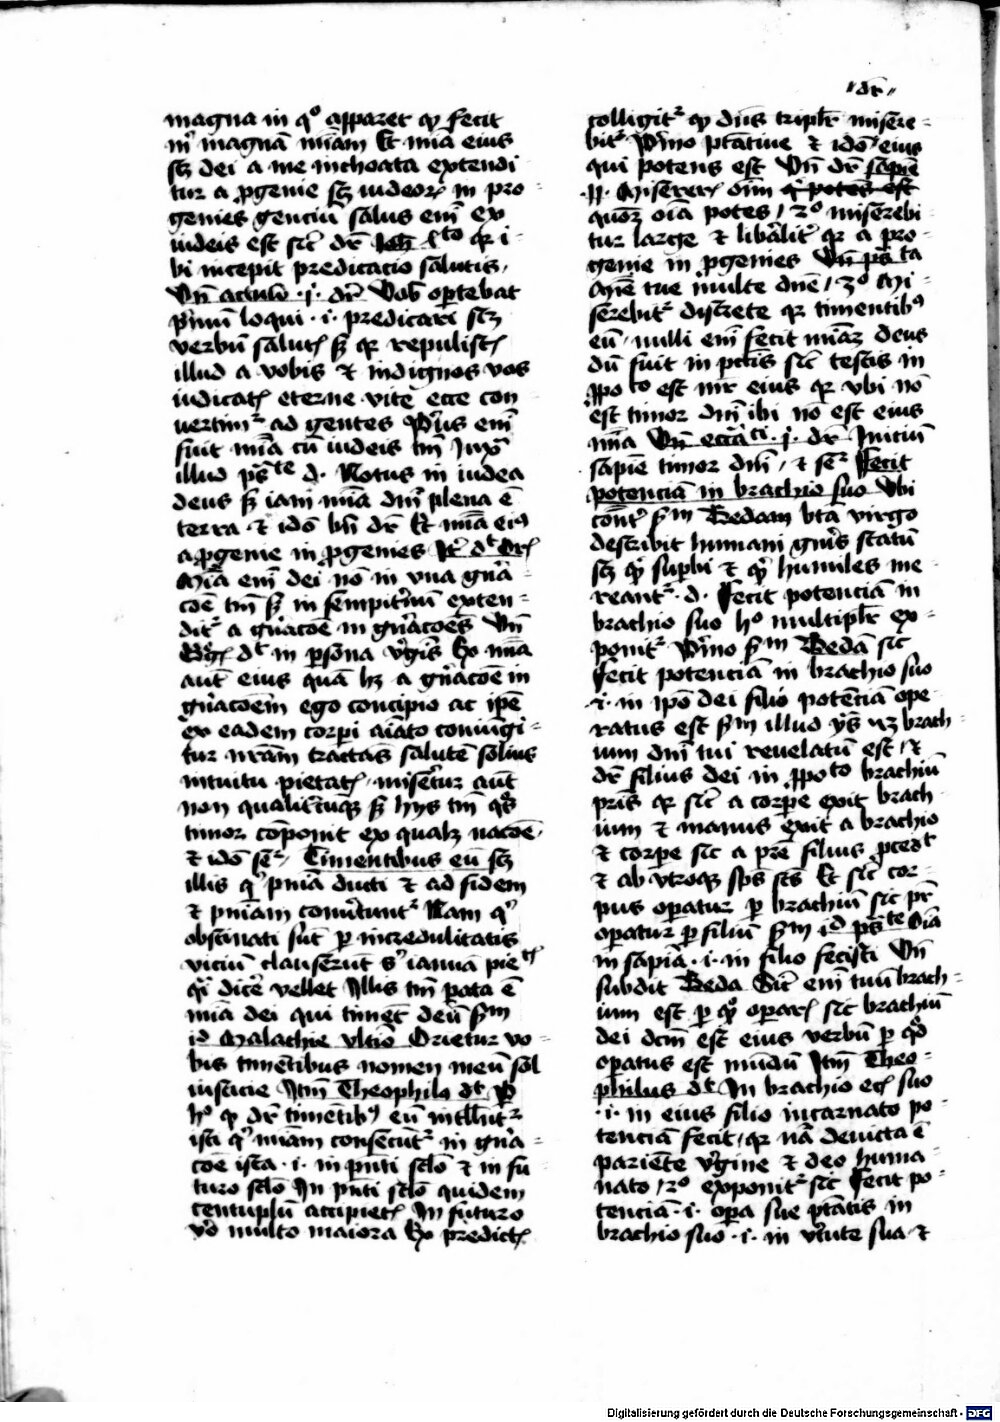 magna in qͦ apparet qꝫ fecit
m̄ magnā miām Et mīa eius
sꝫ dei a me inchoata extendi
tur a ꝓgenie sꝫ iudeoꝝ in pro-
genies genciū salus em̄ ex
iudeis est sic̄ dr̄ Joh̄ 4ͭͦ qꝛ i-
bi incepit predicacio salutis/
Vn̄ actuū ·i· dr̄ Vob̄ oꝑtebat
pͥmū loqui ·i· predicari sꝫ
verbū salutꝭ sꝫ qꝛ repulistꝭ
illud a vobis ⁊ indignos vos
iudicatꝭ eterne vite ecce con
uertimᷣ ad gentes Pͥus em̄
fuit mīa cū iudeis tm̄ Juxᷓ
illud ps̄ͭͤ d. Notus in iudea
deus sꝫ iam mīa dn̄i plena ē
terra ⁊ idō bn̄ dr̄ Et mīa eiꝰ
a ꝓgenie in ꝓgenies
Mīa em̄ dei nō in vna gn̄a
coē tm̄ sꝫ in sempitͥnū exten-
ditᷣ a gn̄acoē in gn̄acoēs Vn̄
dᷤ in ꝑsōna vͥgīs Hꝰ mīa
aut̄ eius quā hꝫ a gn̄acoē in
gn̄acoēm ego concipio ac ip̄e
ex eadem corpi aīato coniūgi-
tur nr̄am tractās salutē solius
intuitu pietatꝭ/ miserͥtur aut̄
non qualitͥcūqꝫ sꝫ hijs tm̄ qͦs
timor cōponit ex qualꝫ nacoē/
⁊ idō seᷣ/ Timentibus eū sꝫ
illis qͥ pn̄ia ducti ⁊ ad fidem
⁊ pn̄iam conuͥtuntᷣ Nam qͥ
obstinati sūt ꝑ incredulitatis
viciū clauserūt sͥ ianuā pieᵗꝭ
qͣi diceͬ vellet Illis tm̄ ꝑata ē
mīa dei qui timēt deū sͫ
id Malachie vltīo Orietur vo-
bis timētibus nomen meū sol
iusticie Itm̄ Theophilꝰ dᷤ ꝑ
hͦ qꝫ dr̄ timētibꝰ eū intlliᵗᷣ
isti qͥ mīam consecutᷣ in gn̄a-
coē ista ·i· in pn̄ti sclo ⁊ in fu
turo sclo In pn̄ti sclo quidem
centuplū accipietꝭ In futuro
vͦ multo maiora Ex predictꝭ
"dr̄"
colligitᷣ qꝫ dn̄s triplr̄ miserͤ-
bitᷣ Pͥmo ptātiue ⁊ idō eius
qui potens est Vn̄ dr̄ sapiē
·11· Misererꝭ oīm
quoꝝ oīa potes/ 2ͦ miserebi
tur large ⁊ libalitͥ qꝛ a pro-
genie in ꝓgenies Vn̄ ps̄ͭᵃ
Mīe tue multe dn̄e/ 3ͦ Mi-
serebitᷣ discrete qꝛ timentibꝰ
eū/ nulli em̄ fecit mīaꝫ deus
dū fuit in pctīs sic̄ testis in
ꝓpoͭͦ est mr̄ eius qꝛ vbi nō
est timor dn̄i ibi nō est eius
mīa Vn̄ eccͣᵗⁱ ·j· dr̄ Initiū
sapiē timor dn̄i/ ⁊ seᷣ Fecit
potenciā in brachio suo Vbi
con̄tᷣ sͫ Bedam btā virgo
describit humani gn̄is statū
sꝫ qͥ suꝑbi ⁊ qͥ humiles me-
reantᷣ. d. Fecit potenciā in
brachio suo hͦ multiplr̄ ex-
ponitᷣ Pͥmo sͫ Bedā sic
Fecit potenciā in brachio suo
·i· in ipō dei filio potēciā ope-
ratus est sͫ illud ys̄ brach-
ium dn̄i tui reuelatū est/ ⁊
dr̄ filius dei in ꝓpoͭͦ brachiū
pr̄is qꝛ sic̄ a corꝑe exit brach-
ium ⁊ manus exit a brachio
⁊ corpe sic a pr̄e filius ꝓcedͭ
⁊ ab vtroqꝫ sp̄s sc̄s Et sic̄ cor-
pus operatur ꝑ brachiū sic pr̄
operatur ꝑ filiū sͫ id ps̄ͭͤ Oīa
in sapiā ·i· in filio fecisti Vn̄
subdit Beda Sic̄ em̄ tuū brach-
ium est ꝑ qͦ operarꝭ sic brachiū
dei dcm̄ est eius verbū ꝑ qͦd
opatus est mūdū Itm̄ Theo-
philus dͭ In brachio eꝭ suo
·i· in eius filio incarnato po-
tenciā fecit/ qꝛ nā deuicta ē
pariēte vͥgine ⁊ deo huma-
nato/ 2ͦ exponitᷣ sic Fecit po-
tenciā ·i· oꝑa sue ptātis in
brachio suo ·i· in vͥtute sua ⁊
Digitalisierung gefördert durch die Deutsche Forschungsgemeinschaft - DFG